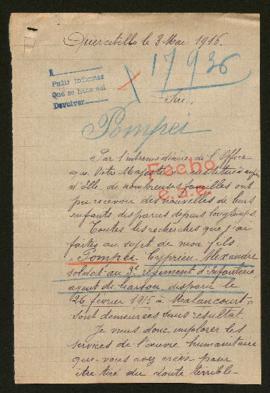 Quercitello le 3 Mai 1916.
A
Pedir informes
Que se hizo así
Devolver
17936
Sire,
Pompei
Par l'intermédiaire de l'Office
que Votre Majesté a institué auprès
d'Elle, de nombreuses familles ont
pu recevoir des nouvelles de leurs
enfants disparus depuis longtemps.
Fecho
Toutes les recherches que j'ai
faites au sujet de mon fils
Pompei Cyprien Alexandre
soldat au 3e régiment d'infanterie
agent de liaison disparu le
26 février 1915 à Malancourt
sont demeurées sans résultat.
Je viens donc implorer les
services de l'œuvre humanitaire
que vous avez créée pour
être tiré du doute terrible